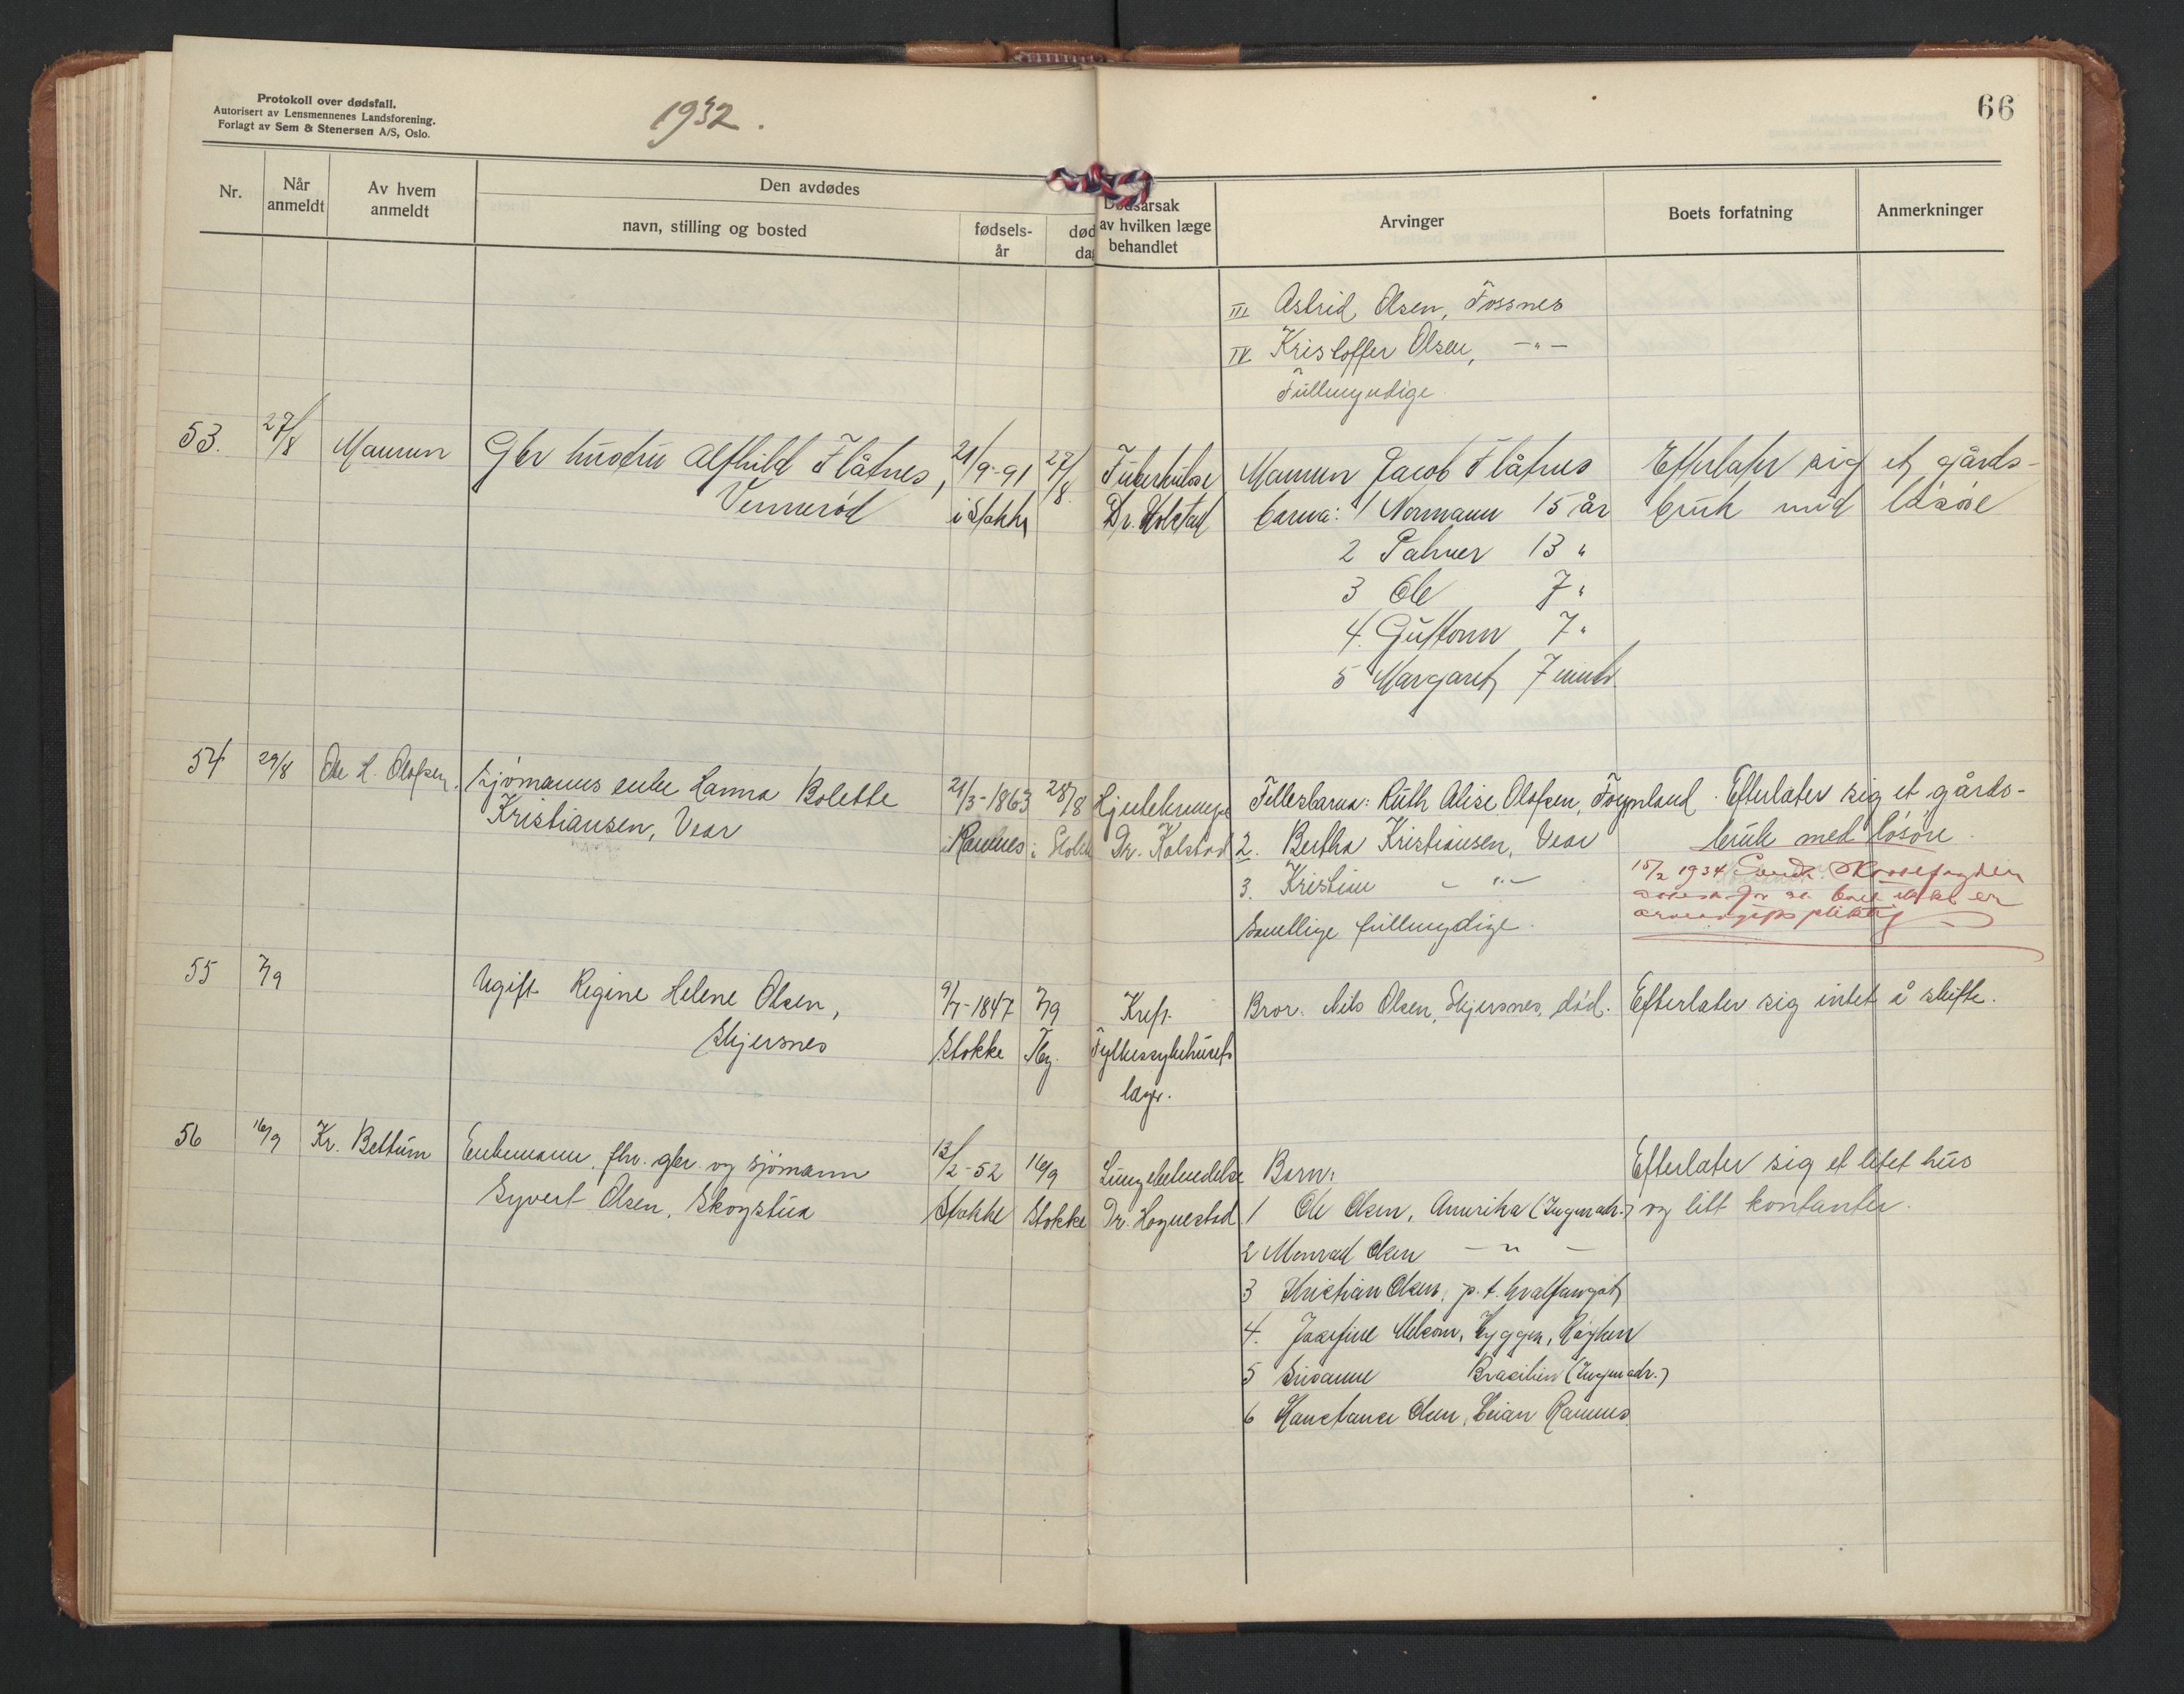 Protokoll over dødsfall.
Autorisert av Lensmennenes Landsforening.
Forlagt av Sem & Stenersen A/S, Oslo.
1932.
66
Nr.
Når anmeldt
Av hvem anmeldt
Den avdødes
navn, stilling og bosted
fødsels-
år
død
da
Dødsårsak
av hvilken læge
behandlet
Arvinger
Boets forfatning
Anmerkninger
III Astrid Olsen, Fossnes
IV Kristoffer Olsen, -"-
Fullmyndige.
53. 27/8 Mannen Gbr hustru Alfhild Flåtnes, 21/9-91 27/8 Tuberkulose Mannen Jacob Flåtnes Efterlater sig et gårds-
Vennerød i Stokke Dr. Kolstad barna: 1 Normann 15 år bruk med løsøre
2 Palmer 13 "
3 Ole 7 "
4. Guttorm 7 "
5 Margaret 7 mnd.
54 29/8 Ole H. Olofsen. Sjømanns enke Hanna Bolette 21/3-1863 28/8 Hjertekrampe Fellesbarna: Ruth Alise Olofsen, Føynland. Efterlater sig et gårds-
Kristiansen, Vear i Ramnes i Stokke Dr. Kolstad 2. Bertha Kristiansen, Vear bruk med løsøre.
3. Kristine - " -
Samtlige fullmydige.
15/2 1934 Sendt
for at boet ikke er
arveavgiftspliktig
55 7/9 Ugift Regine Helene Olsen, 9/7-1847 7/9 Kreft. Bror. Nils Olsen, Skjersnes, død. Efterlater sig intet å skifte.
Skjersnes Stokke Tbg. Fylkessykehusets
læge.
56 16/9 Kr. Bettum Enkemann, fhv. gbr. og sjømann 13/2-52 16/9 Lungebetendelse Barn: Efterlater sig et litet hus
Syvert Olsen, Skogstua Stokke Stokke Dr. Hognestad 1 Ole Olsen, Amerika (Ingen adr.) og litt kontanter.
2 Monrad Olsen - " -
3 Kristian Olsen, p.t. hvalfangst
4. Josefine Melsom, Hyggen, Røyken
5 Susanne Brasilien (Ingen adr.)
6 Konstanse Olsen, Leian Ramnes